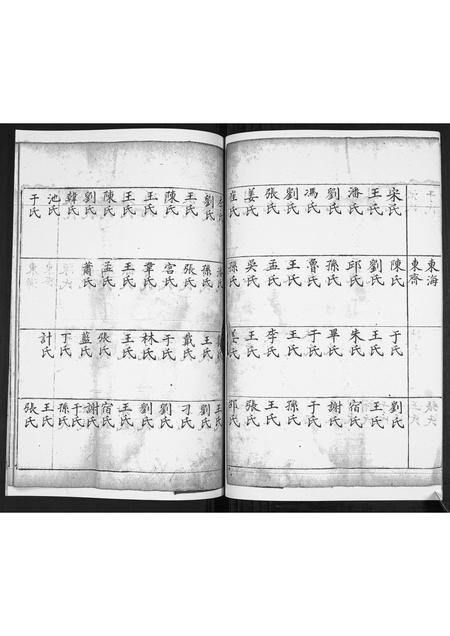 東海
東齋
宋氏 王氏 潘氏 劉氏 馮氏 劉氏 張氏 姜氏 崔氏
陳氏 劉氏 邱氏 孫氏 魯氏 王氏 孟氏 吳氏 孫氏
于氏 王氏 朱氏 畢氏 于氏 王氏 李氏 王氏 姜氏
劉氏 王氏 宿氏 謝氏 于氏 孫氏 王氏 張氏 邱氏
劉氏 王氏 陳氏 王氏 王氏 陳氏 劉氏 韓氏 池氏 于氏
孫氏 張氏 宮氏 鞏氏 王氏 孟氏 蕭氏
王氏 戴氏 于氏 林氏 王氏 張氏 藍氏 丁氏 計氏
王氏 劉氏 刁氏 劉氏 劉氏 王氏 宿氏 謝氏 于氏 孫氏 王氏 張氏